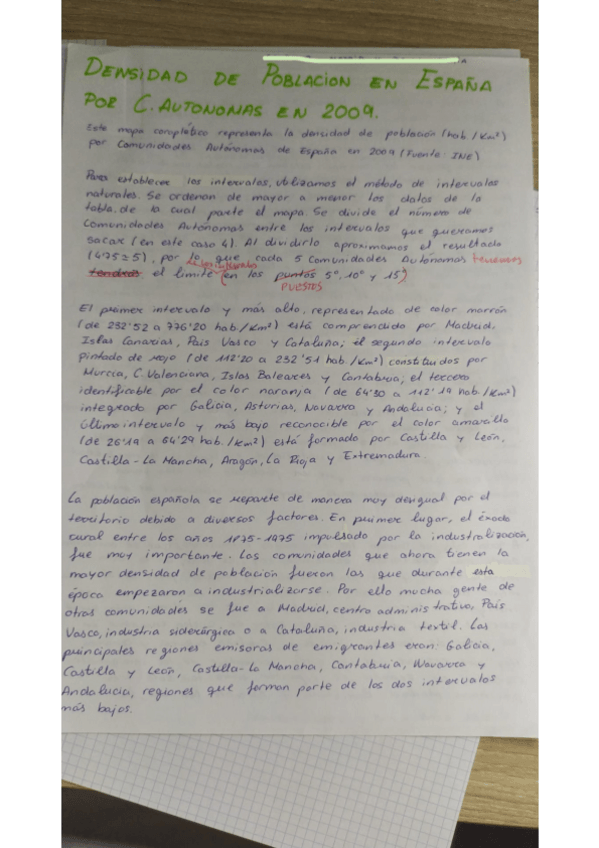 DENSIDAD DE POBLACION EN ESPAÑA
POR C. AUTONOMAS EN 2009.
Este mapa coroplético representa la densidad de población (hab./Km²)
por Comunidades Autónomas de España en 2009 (Fuente: INE)
Para establecer los intervalos, utilizamos el método de intervalos
naturales. Se ordenan de mayor a menor los datos de la
tabla de la cual parte el mapa. Se divide el número de
Comunidades Autónomas entre los intervalos que queramos
sacar (en este caso 4). Al dividirlo aproximamos el resultado
(4'75 ≃ 5), por lo que cada 5 Comunidades Autónomas tenemos
tendrás el límite (en los puntos 5º, 10º y 15º)
PUESTOS
El primer intervalo y más alto, representado de color marrón
(de 232'52 a 776'20 hab./Km²) está comprendido por Madrid,
Islas Canarias, País Vasco y Cataluña; el segundo intervalo
pintado de rojo (de 112'20 a 232'51 hab./Km²) constituidos por
Murcia, C. Valenciana, Islas Baleares y Cantabria; el tercero
identificable por el color naranja (de 64'30 a 112'19 hab./Km²)
integrado por Galicia, Asturias, Navarra y Andalucía; y el
último intervalo y más bajo reconocible por el color amarillo
(de 26'19 a 64'29 hab./Km²) está formado por Castilla y León,
Castilla-La Mancha, Aragón, La Rioja y Extremadura.
La población española se reparte de manera muy desigual por el
territorio debido a diversos factores. En primer lugar, el éxodo
rural entre los años 1875-1975 impulsado por la industralización,
fue muy importante. Las comunidades que ahora tienen la
mayor densidad de población fueron las que durante esta
época empezaron a industrializarse. Por ello mucha gente de
otras comunidades se fue a Madrid, centro administrativo, País
Vasco, industria siderúrgica o a Cataluña, industria textil. Las
principales regiones emisoras de emigrantes eran: Galicia,
Castilla y León, Castilla-La Mancha, Cantabria, Navarra y
Andalucía, regiones que forman parte de los dos intervalos
más bajos.